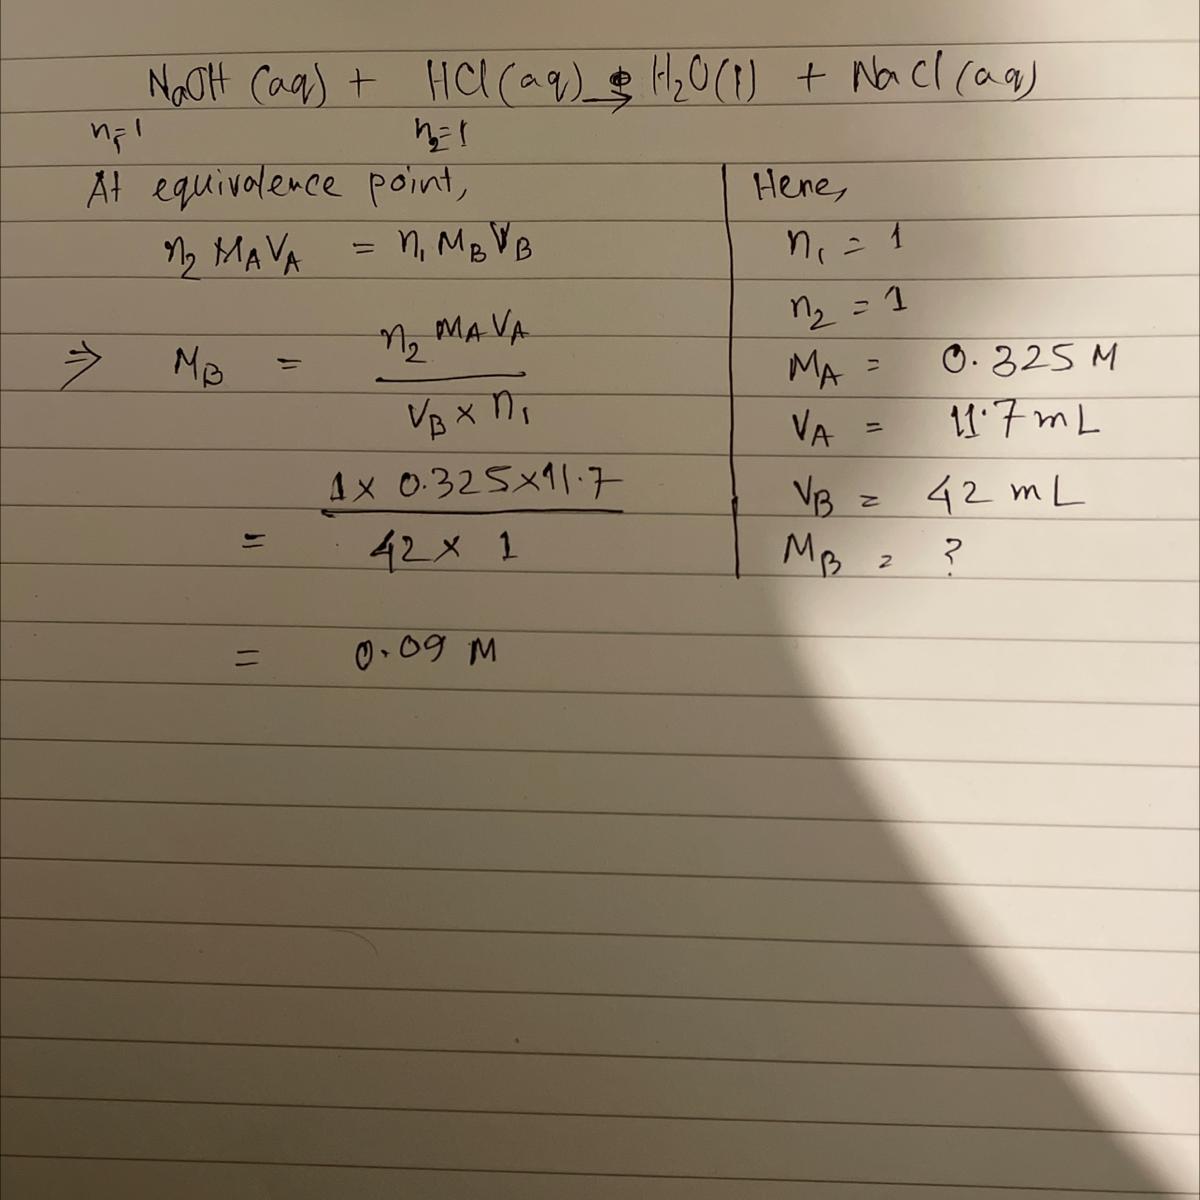 NaOH (aq) + HCl (aq) → H₂O(l) + NaCl (aq)
n₁=1 n₂=1
At equivalence point,
n₂ MAVA = n₁ MB VB
⇒ MB = n₂ MA VA / VB × n₁
= 1 × 0.325×11.7 / 42 × 1
= 0.09 M
Here,
n₁ = 1
n₂ = 1
MA = 0.325 M
VA = 11.7 mL
VB = 42 mL
MB = ?